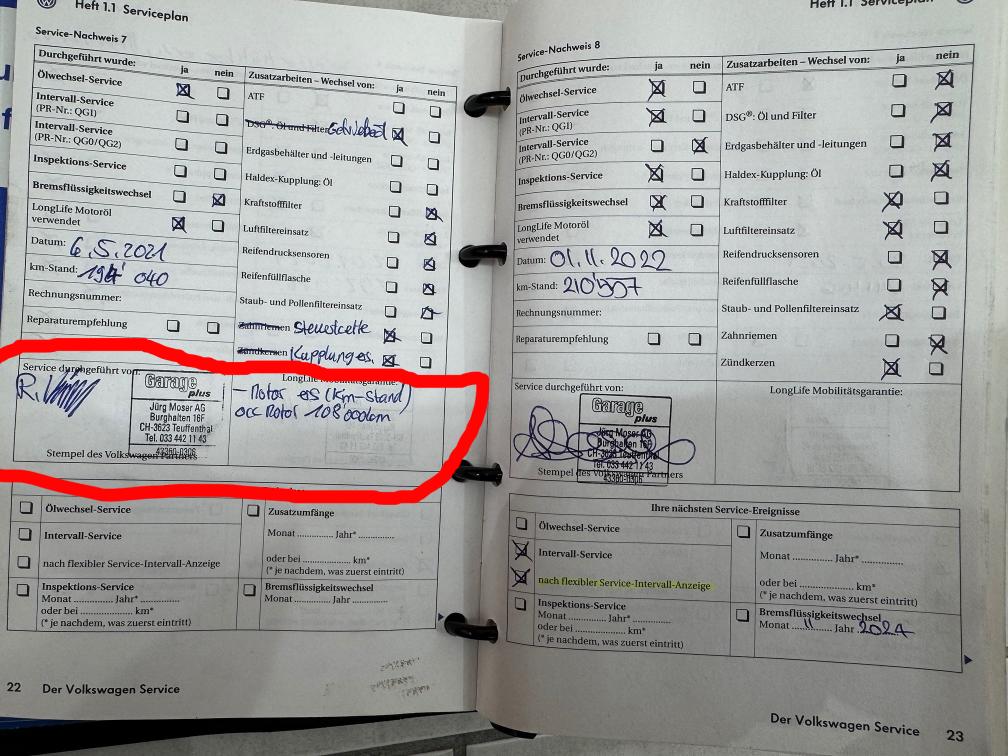 Heft 1.1 Serviceplan
Service-Nachweis 7
Durchgeführt wurde: ja nein
Ölwechsel-Service
Intervall-Service
(PR-Nr.: QG1)
Intervall-Service
(PR-Nr.: QG0/QG2)
Inspektions-Service
Bremsflüssigkeitswechsel
LongLife Motoröl
verwendet
Datum: 6.5.2021
km-Stand: 194 040
Rechnungsnummer:
Reparaturempfehlung
Zusatzarbeiten – Wechsel von: ja nein
ATF
DSG®: Öl und Filter
Erdgasbehälter und -leitungen
Haldex-Kupplung: Öl
Kraftstofffilter
Luftfiltereinsatz
Reifendrucksensoren
Reifenfüllflasche
Staub- und Pollenfiltereinsatz
Zahnriemen Steuerkette
Zündkerzen Kupplung es.
Service durchgeführt von:
R.
Garage
plus
Jürg Moser AG
Burghalten 16F
CH-3623 Teuffenthal
Tel. 033 442 11 43
43360-0306
Stempel des Volkswagen Partners
LongLife Mobilitätsgarantie:
– Motor ers (Km-Stand)
occ Motor 108'000km
Ölwechsel-Service
Intervall-Service
nach flexibler Service-Intervall-Anzeige
Inspektions-Service
Monat ............ Jahr* ..............
oder bei ........................ km*
(* je nachdem, was zuerst eintritt)
Zusatzumfänge
Monat ............ Jahr* ..............
oder bei ........................ km*
(* je nachdem, was zuerst eintritt)
Bremsflüssigkeitswechsel
Monat ............ Jahr ..............
22 Der Volkswagen Service
Heft 1.1 Serviceplan
Service-Nachweis 8
Durchgeführt wurde: ja nein
Ölwechsel-Service
Intervall-Service
(PR-Nr.: QG1)
Intervall-Service
(PR-Nr.: QG0/QG2)
Inspektions-Service
Bremsflüssigkeitswechsel
LongLife Motoröl
verwendet
Datum: 01.11.2022
km-Stand: 210'507
Rechnungsnummer:
Reparaturempfehlung
Zusatzarbeiten – Wechsel von: ja nein
ATF
DSG®: Öl und Filter
Erdgasbehälter und -leitungen
Haldex-Kupplung: Öl
Kraftstofffilter
Luftfiltereinsatz
Reifendrucksensoren
Reifenfüllflasche
Staub- und Pollenfiltereinsatz
Zahnriemen
Zündkerzen
Service durchgeführt von:
Garage
plus
Jürg Moser AG
Burghalten 16F
CH-3623 Teuffenthal
Tel. 033 442 11 43
43360-0306
Stempel des Volkswagen Partners
LongLife Mobilitätsgarantie:
Ihre nächsten Service-Ereignisse
Ölwechsel-Service
Intervall-Service
nach flexibler Service-Intervall-Anzeige
Inspektions-Service
Monat ............ Jahr* ..............
oder bei ........................ km*
(* je nachdem, was zuerst eintritt)
Zusatzumfänge
Monat ............ Jahr* ..............
oder bei ........................ km*
(* je nachdem, was zuerst eintritt)
Bremsflüssigkeitswechsel
Monat 11 Jahr 2024
Der Volkswagen Service 23